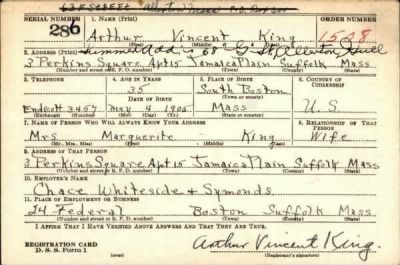 63 F STREET
SERIAL NUMBER 1. NAME (Print) ORDER NUMBER
286 Arthur Vincent King 1528
(First) (Middle) (Last)
Summer Add is 68 G St Allerton Hull
2. ADDRESS (Print)
3 Perkins Square Apt 15 Jamaica Plain Suffolk Mass
(Number and street or R. F. D. number) (Town) (County) (State)
3. TELEPHONE 4. AGE IN YEARS 5. PLACE OF BIRTH 6. COUNTRY OF CITIZENSHIP
35 South Boston
DATE OF BIRTH (Town or county)
Endicott 3457 May 4 1905 Mass U.S.
(Exchange) (Number) (Mo.) (Day) (Yr.) (State or country)
7. NAME OF PERSON WHO WILL ALWAYS KNOW YOUR ADDRESS 8. RELATIONSHIP OF THAT PERSON
Mrs Marguerite King Wife
(Mr., Mrs., Miss) (First) (Middle) (Last)
9. ADDRESS OF THAT PERSON
3 Perkins Square Apt 15 Jamaica Plain Suffolk Mass
(Number and street or R. F. D. number) (Town) (County) (State)
10. EMPLOYER'S NAME
Chace Whiteside & Symonds
11. PLACE OF EMPLOYMENT OR BUSINESS
24 Federal Boston Suffolk Mass
(Number and street or R. F. D. number) (Town) (County) (State)
I AFFIRM THAT I HAVE VERIFIED ABOVE ANSWERS AND THAT THEY ARE TRUE.
REGISTRATION CARD
D. S. S. Form 1 Arthur Vincent King.
(Registrant's signature)